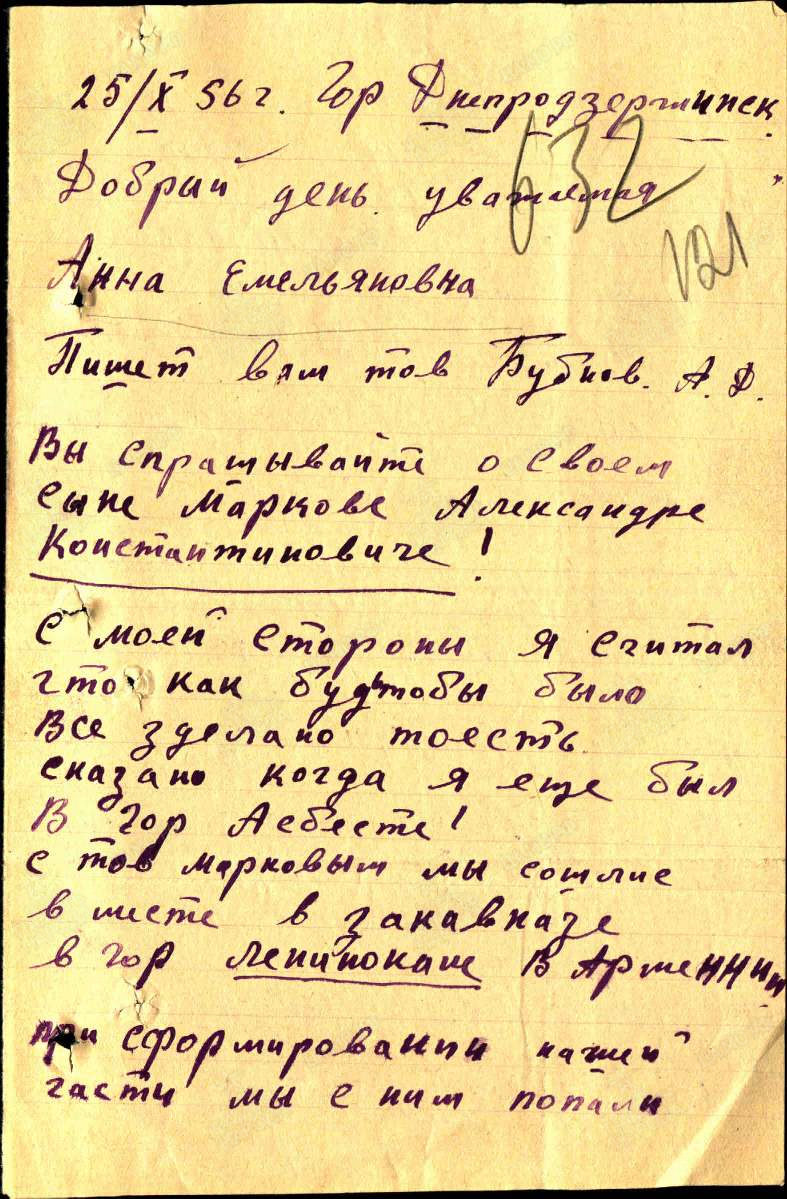 25/X 56 г. Гор Днепродзержинск
632
Добрый день уважаемая
121
Анна Емельяновна
Пишет вам тов Бубнов. А. Д.
Вы спрашывайте о своем
сыне Маркове Александре
Константиновиче!
с моей стороны я считал
что как будьтобы было
все зделано тоесть
сказано когда я еще был
в гор Асбесте!
с тов марковым мы сошлис
в месте в закавказе
в гор ленинокане в Арменнии
при сформировании нашей
части мы с ним попали